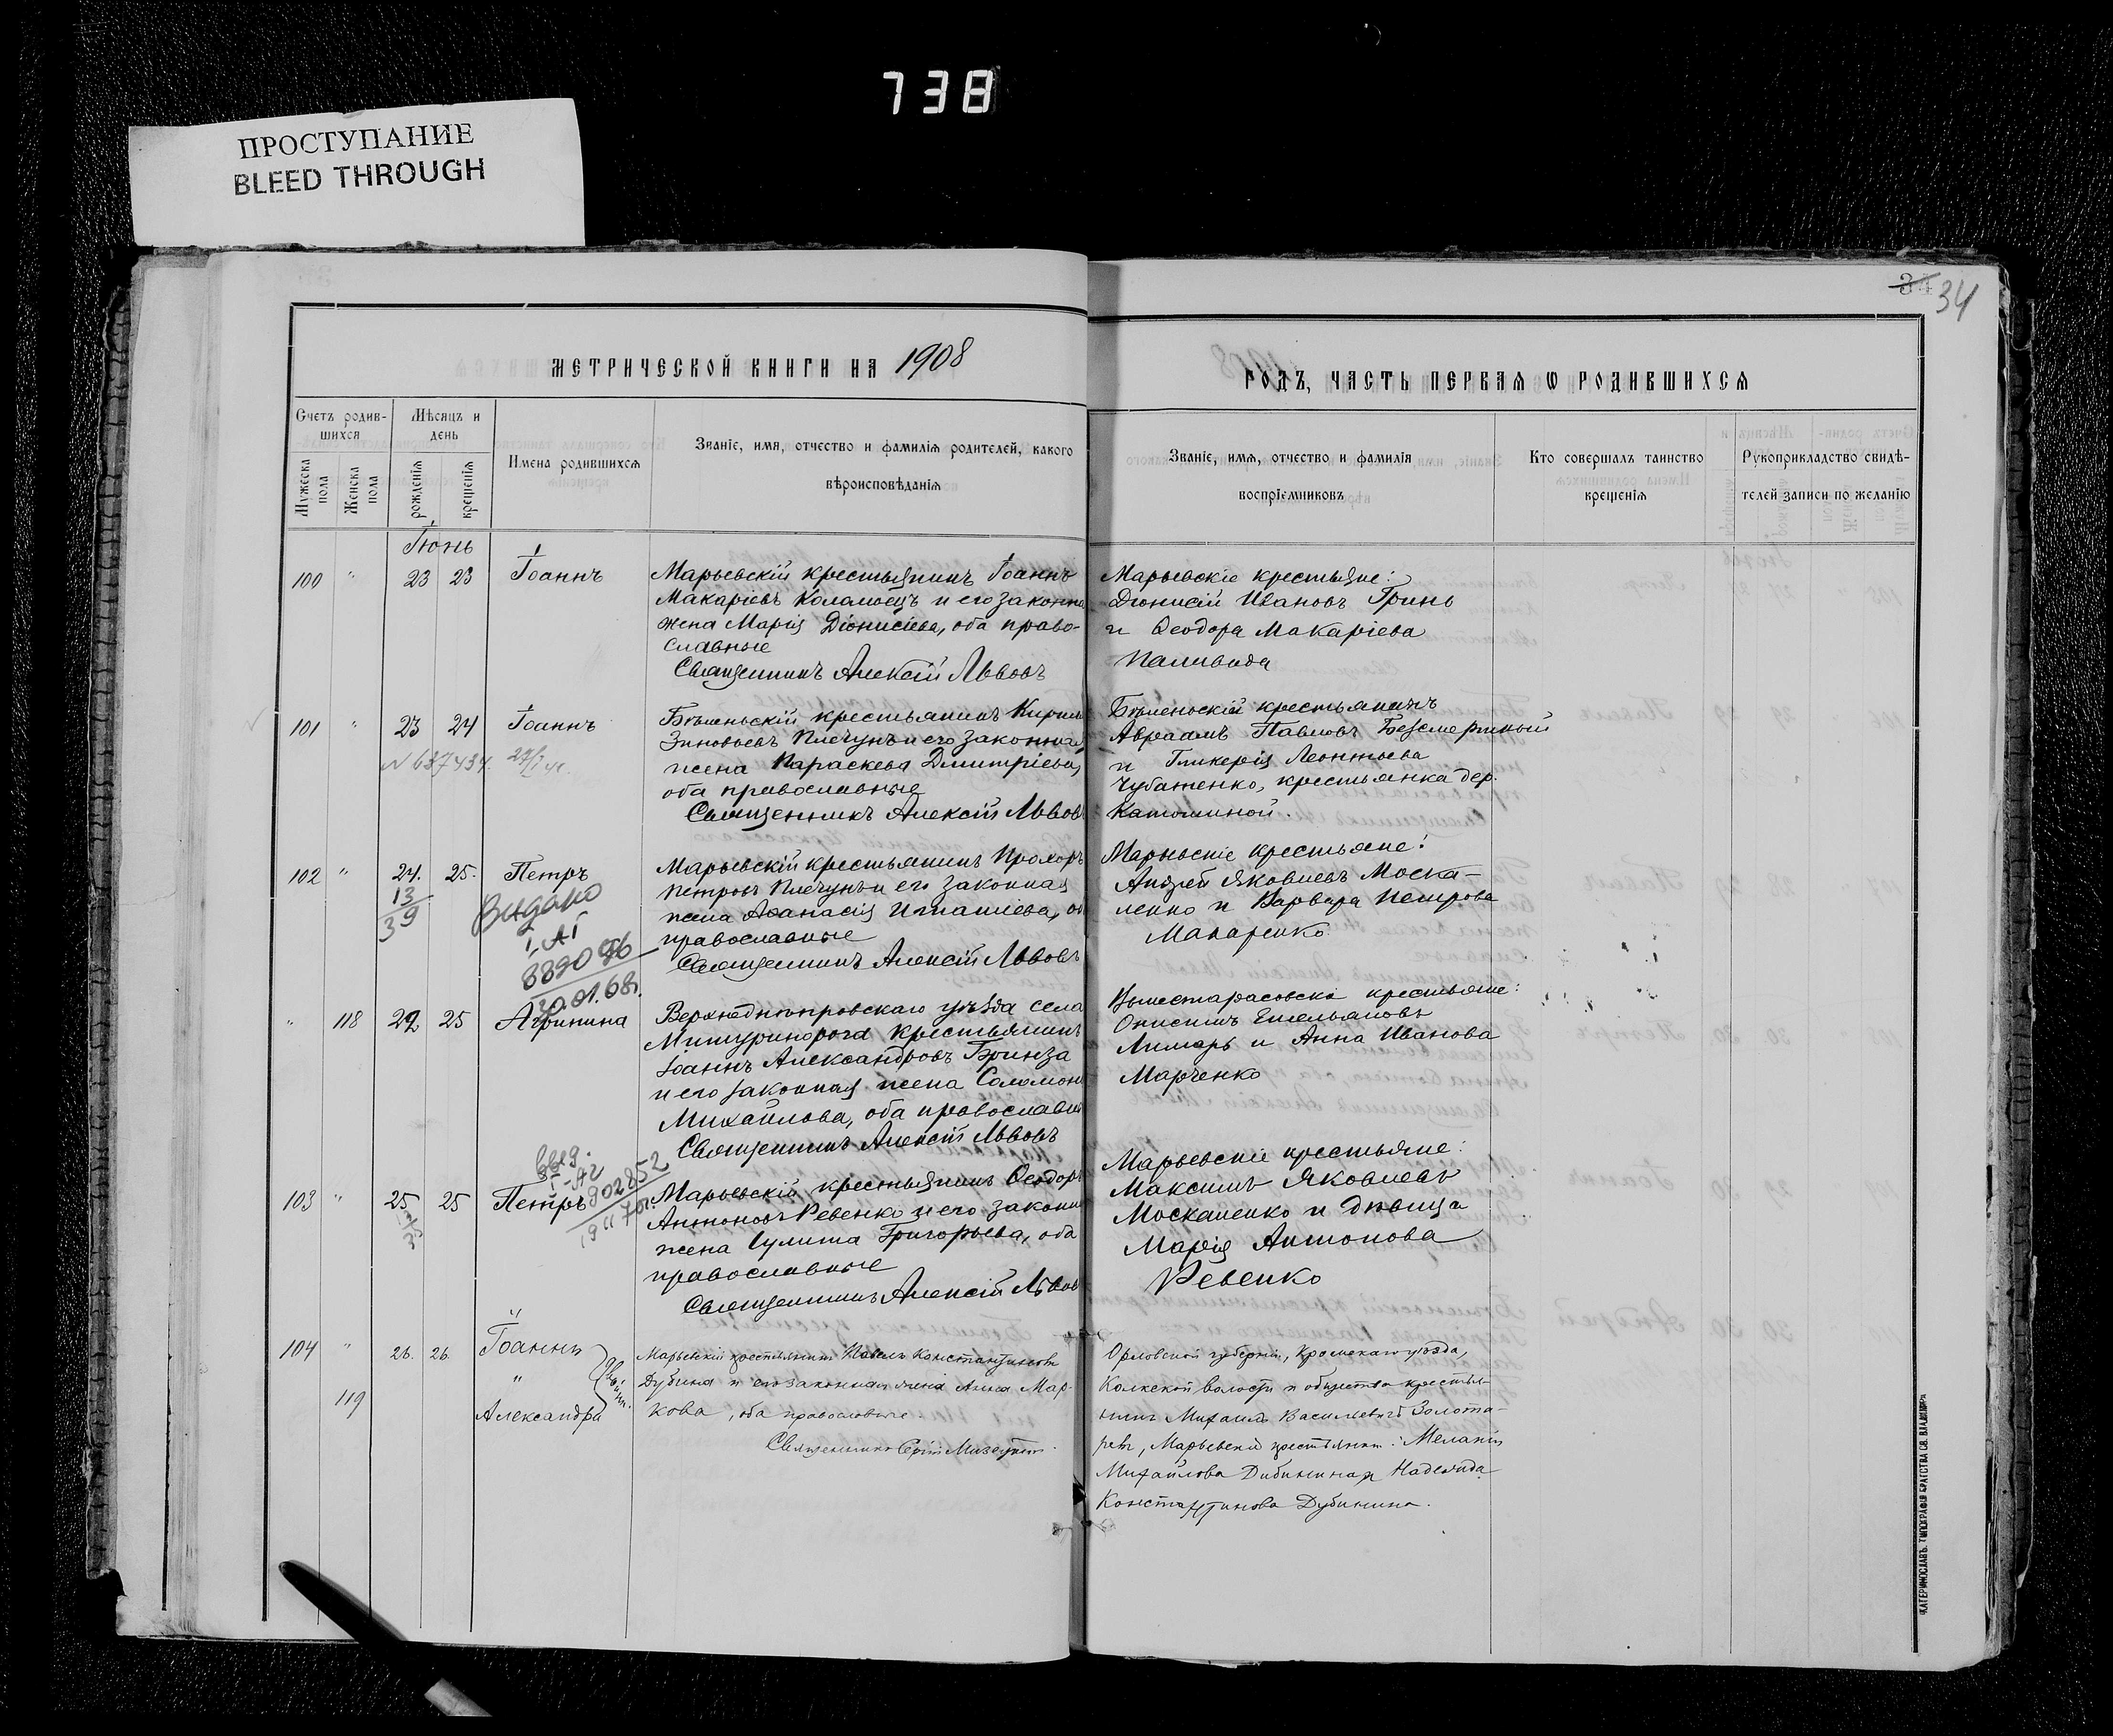 738
ПРОСТУПАНИЕ
BLEED THROUGH
34 34
МЕТРИЧЕСКОЙ КНИГИ НА 1908
ГОДЪ, ЧАСТЬ ПЕРВАЯ Ѡ РОДИВШИХСЯ
Счетъ родив-
шихся
Мужеска пола
Женска пола
Мѣсяцъ и
день
рожденія
крещенія
Имена родившихся
Званіе, имя, отчество и фамилія родителей, какого
вѣроисповѣданія
Званіе, имя, отчество и фамилія
воспріемниковъ
Кто совершалъ таинство
крещенія
Рукоприкладство свидѣ-
телей записи по желанію
Іюнь
100 " 23 23 Іоаннъ
Марьевскій крестьянинъ Іоаннъ
Макаріевъ Коломоецъ и его законна
жена Марія Діонисіева, оба право-
славные
Священникъ Алексій Львовъ
Марьевскіе крестьяне:
Діонисій Ивановъ Гринь
и Ѳеодора Макаріева
Паливода
101 " 23 24 Іоаннъ
N 637434
Бѣленьскій крестьянинъ Кирилл
Зиновьевъ Плечунъ и его законная
жена Параскева Димитріева,
оба православные
Священникъ Алексій Львов
Бѣленьскій крестьянинъ
Авраамъ Павловъ Безсмертный
и Гликерія Леонтьева
Чубатенко, крестьянка дер.
102 " 24. 25. Петръ
13
39
Видано
I АІ
889096
30.01.68г.
Марьевскій крестьянинъ Прохоръ
Петровъ Плечунъ и его законная
жена Аѳанасія Игнатіева, об
православные
Священникъ Алексій Львовъ
Марьевскіе крестьяне:
Андрей Яковлевъ Моска-
ленко и Варвара Петрова
Макаренко
" 118 22 25 Агрипина
Верхнеднѣпровскаго уѣзда села
Мишуринорога крестьянинъ
Іоаннъ Александровъ Бринза
и его законная жена Соломон
Михайлова, оба православны
Священникъ Алексій Львовъ
Вышетарасовскіе крестьяне:
Онисимъ Емельяновъ
Лимарь и Анна Иванова
Марченко
103 " 25 25 Петръ
выд.
I-АГ
902852
Марьевскій крестьянинъ Ѳеодоръ
Антоновъ Ревенко и его законн
жена Іулита Григорьева, оба
православные
Священникъ Алексій Львов
Марьевскіе крестьяне:
Максимъ Яковлевъ
Москаленко и дѣвица
Марія Антонова
Ревенко
104 " 26. 26. Іоаннъ
"
119 Александра
двойни.
Марьевскій крестьянинъ Павелъ Константиновъ
Дубина и его законная жена Анна Мар-
кова, оба православные.
Священникъ Сергій
Орловской губерніи, Кромскаго уѣзда,
волости и общества крестья-
нинъ Михаилъ Васильевичъ Золота-
ревъ, Марьевскія крестьянки: Меланія
Михайлова и Надежда
Константинова Дубинина.
ЕКАТЕРИНОСЛАВЪ. ТИПОГРАФІЯ БРАТСТВА СВ. ВЛАДИМІРА